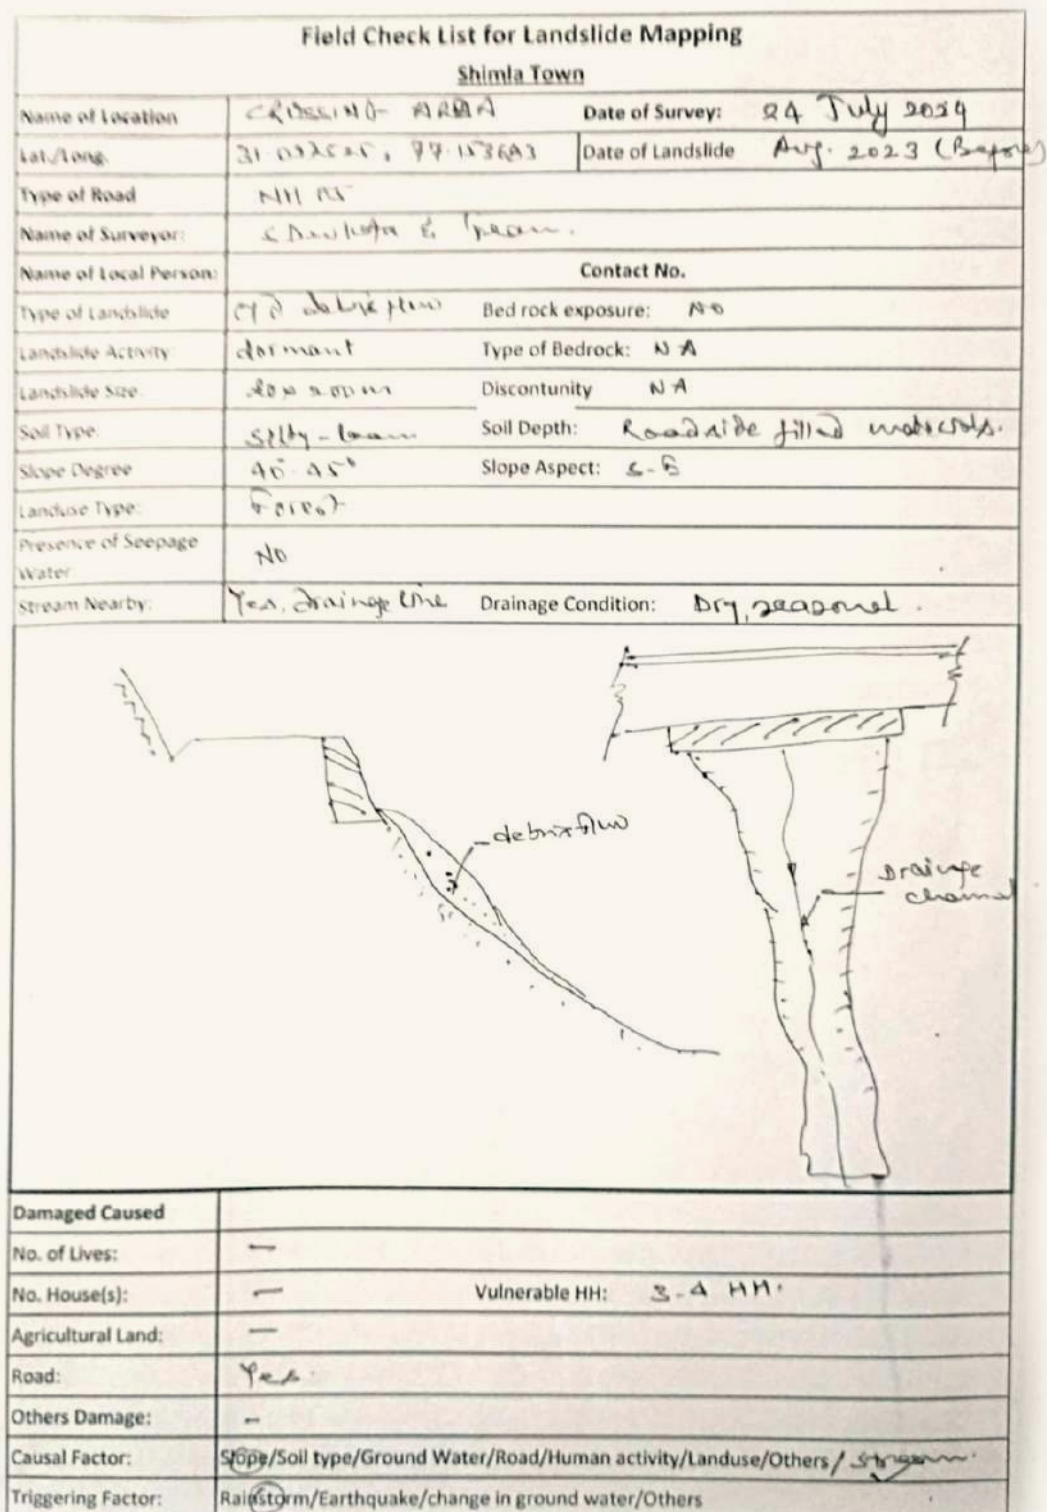 Field Check List for Landslide Mapping
Shimla Town
Name of Location CROSSING AREA Date of Survey: 24 July 2024
Lat./Long. Date of Landslide Aug. 2023 (Before)
Type of Road NH
Name of Surveyor: & Team.
Name of Local Person: Contact No.
Type of Landslide debris flow Bed rock exposure: NO
Landslide Activity dormant Type of Bedrock: NA
Landslide Size Discontunity NA
Soil Type: Silty-loam Soil Depth: Roadside filled materials.
Slope Degree 40-45° Slope Aspect: S-E
Landuse Type: Forest
Presence of Seepage
Water NO
Stream Nearby: Yes, drainage line Drainage Condition: Dry, seasonal.
debris flow
Drainage
channel
Damaged Caused
No. of Lives: —
No. House(s): — Vulnerable HH: 3-4 HH.
Agricultural Land: —
Road: Yes.
Others Damage: -
Causal Factor: Slope/Soil type/Ground Water/Road/Human activity/Landuse/Others / stream.
Triggering Factor: Rainstorm/Earthquake/change in ground water/Others